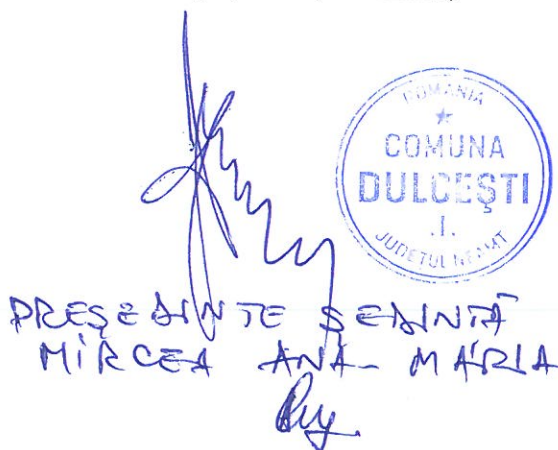 ROMANIA
COMUNA
DULCEȘTI
.I.
JUDEȚUL NEAMȚ
PREȘEDINTE ȘEDINȚĂ
MIRCEA ANA-MARIA